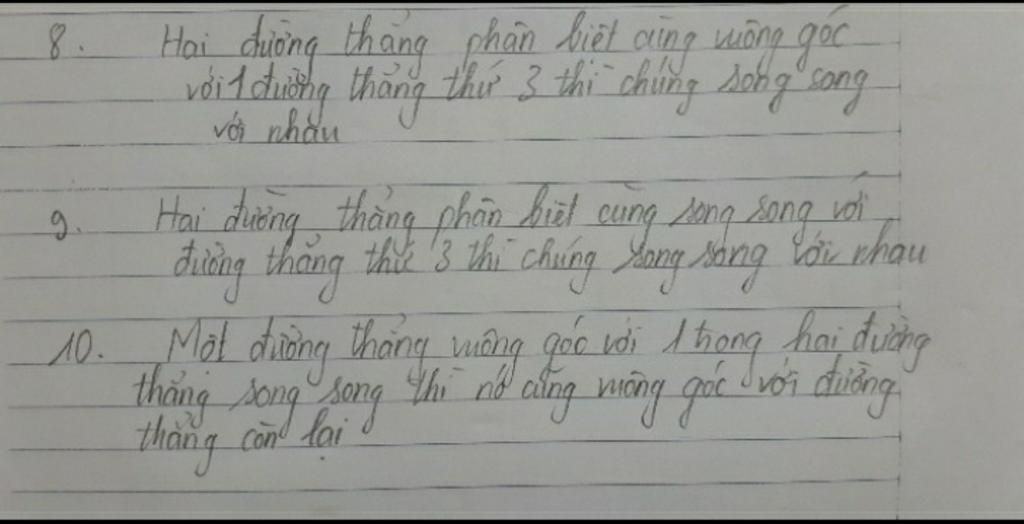 8. Hai đường thẳng phân biệt cùng vuông góc
với 1 đường thẳng thứ 3 thì chúng song song
với nhau
9. Hai đường thẳng phân biệt cùng song song với
đường thẳng thứ 3 thì chúng song song với nhau
10. Một đường thẳng vuông góc với 1 trong hai đường
thẳng song song thì nó cũng vuông góc với đường
thẳng còn lại